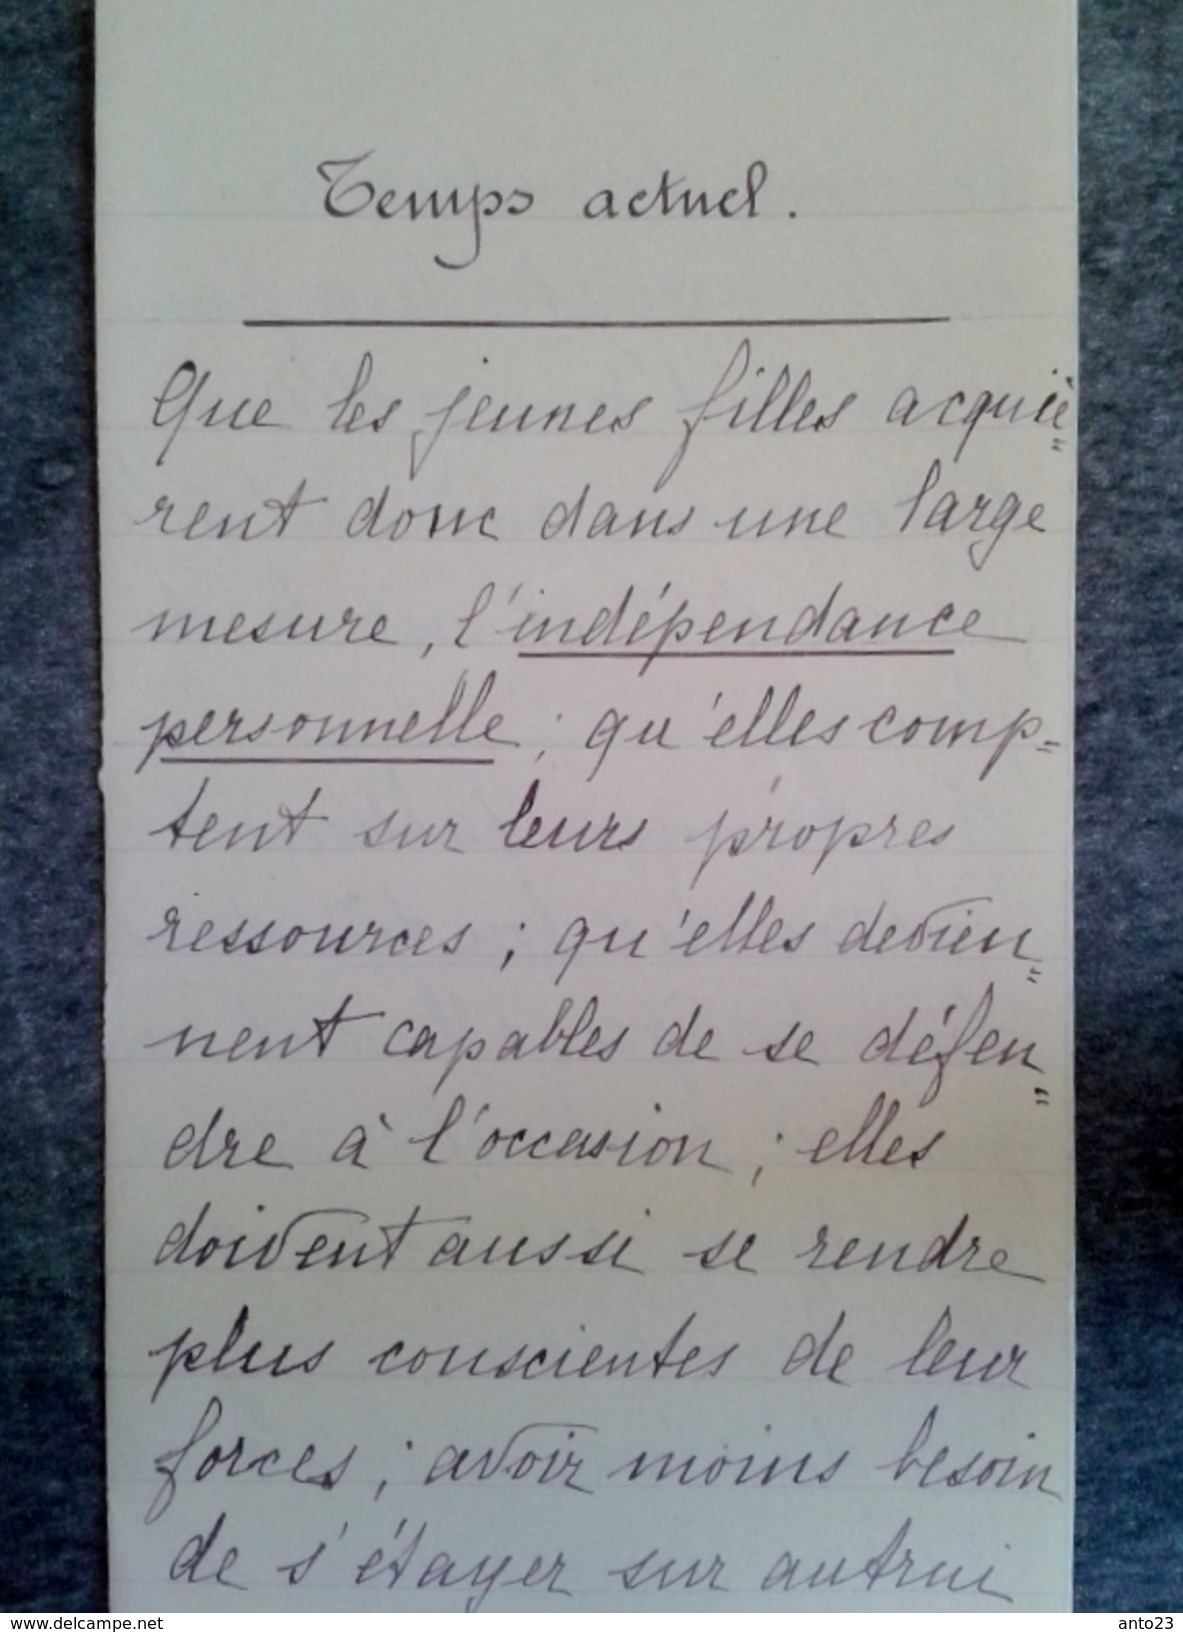 Temps actuel.
Que les jeunes filles acquiè=
rent donc dans une large
mesure, l'indépendance
personnelle ; qu'elles comp=
tent sur leurs propres
ressources ; qu'elles devien=
nent capables de se défen=
dre à l'occasion ; elles
doivent aussi se rendre
plus conscientes de leur
forces ; avoir moins besoin
de s'étayer sur autrui
delcampe.net
anto23